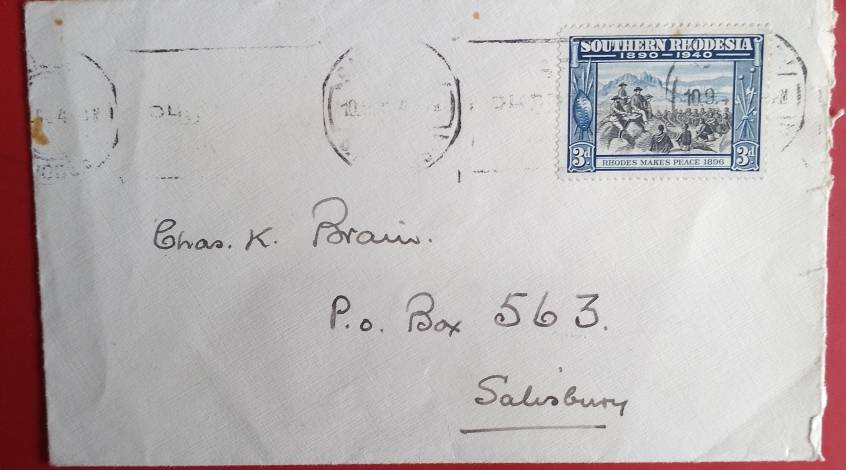 SOUTHERN RHODESIA
1890-1940
10.9.4
3d RHODES MAKES PEACE 1896 3d
Chas. K. Brain.
P.o. Box 563.
Salisbury